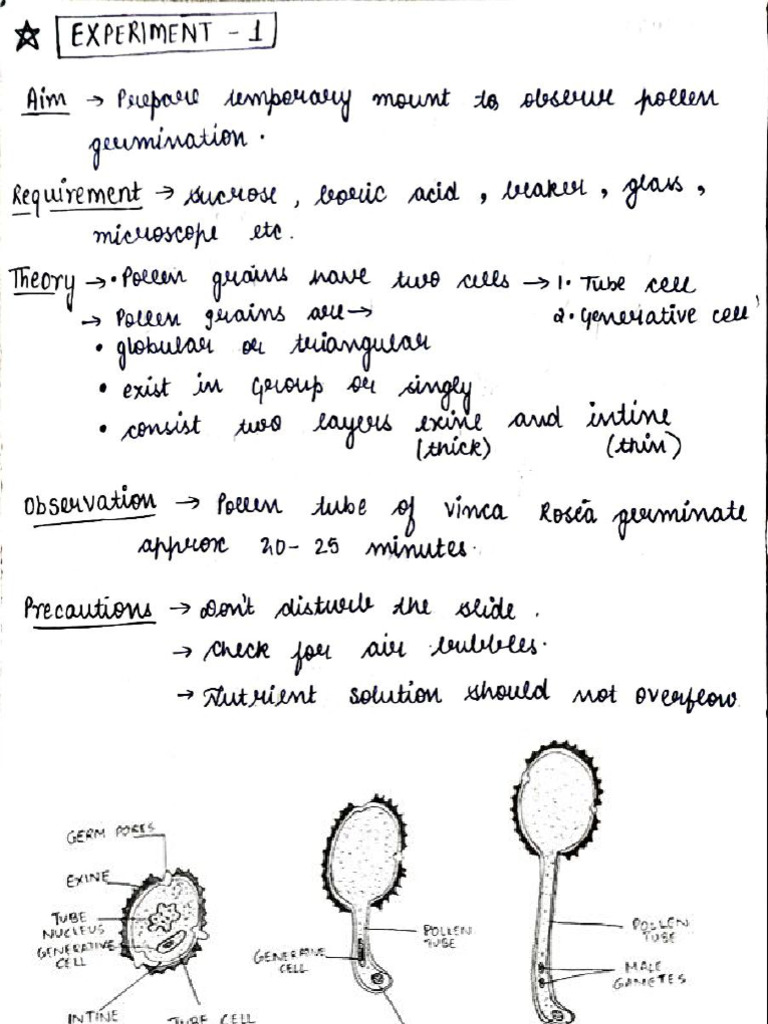 ☆ EXPERIMENT - 1
Aim → Prepare temporary mount to observe pollen
germination.
Requirement → sucrose, boric acid, beaker, glass,
microscope etc.
Theory → • Pollen grains have two cells → 1. Tube cell
→ Pollen grains are → 2. Generative cell
• globular or triangular
• exist in Group or singly
• consist two layers exine and intine
(thick) (thin)
Observation → Pollen tube of vinca Rosea germinate
approx 20-25 minutes.
Precautions → Don't disturb the slide.
→ check for air bubbles.
→ Nutrient solution should not overflow
GERM PORES
EXINE
TUBE
NUCLEUS
GENERATIVE
CELL
INTINE
TUBE CELL
GENERATIVE
CELL
POLLEN
TUBE
POLLEN
TUBE
MALE
GAMETES